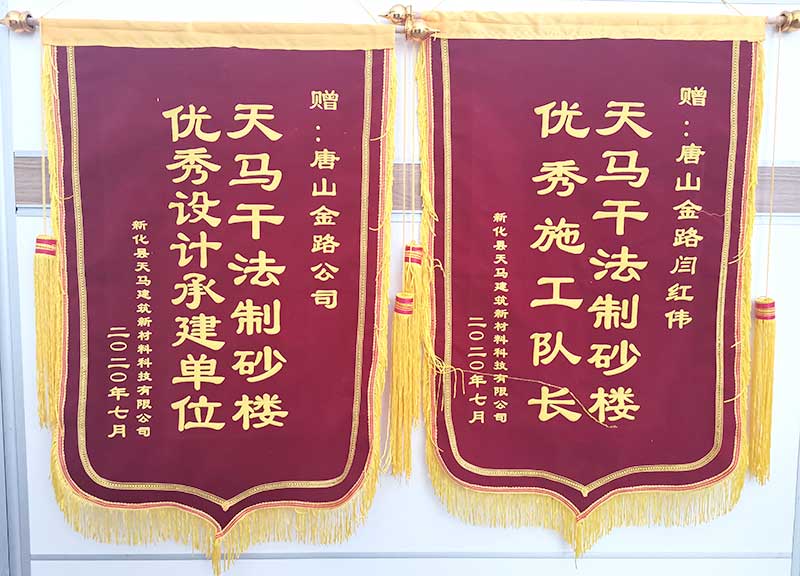 赠：唐山金路公司
天马干法制砂楼
优秀设计承建单位
新化县天马建筑新材料科技有限公司
二〇二〇年七月
赠：唐山金路闫红伟
天马干法制砂楼
优秀施工队长
新化县天马建筑新材料科技有限公司
二〇二〇年七月